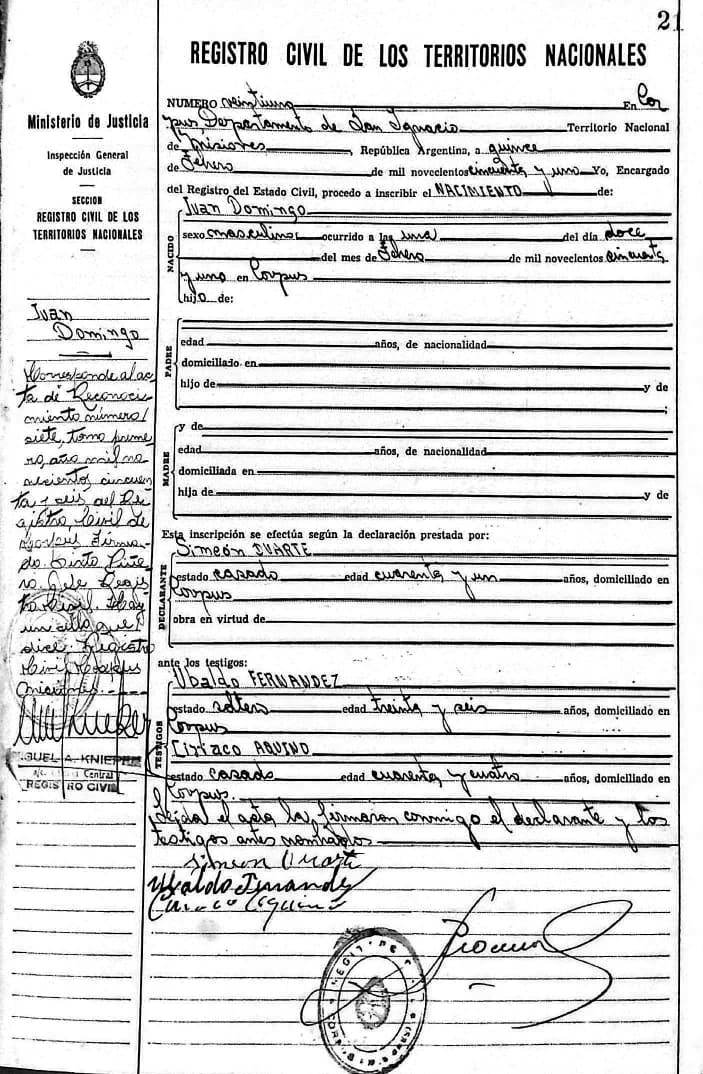 21
REGISTRO CIVIL DE LOS TERRITORIOS NACIONALES
Ministerio de Justicia
Inspección General
de Justicia
SECCION
REGISTRO CIVIL DE LOS
TERRITORIOS NACIONALES
NUMERO veintiuno En Cor
pus, Departamento de San Ignacio Territorio Nacional
de Misiones, República Argentina, a quince
de Febrero de mil novecientos cincuenta y uno Yo, Encargado
del Registro del Estado Civil, procedo a inscribir el NACIMIENTO de:
NACIDO
Juan Domingo
sexo masculino ocurrido a las una del día doce
del mes de Febrero de mil novecientos cincuenta
y uno en Corpus
hijo de:
PADRE
edad años, de nacionalidad
domiciliado en
hijo de y de
;
MADRE
y de
edad años, de nacionalidad
domiciliada en
hija de y de
Esta inscripción se efectúa según la declaración prestada por:
DECLARANTE
Simeón DUARTE
estado casado edad cuarenta y un años, domiciliado en
Corpus
obra en virtud de
ante los testigos:
TESTIGOS
Ubaldo FERNANDEZ
estado soltero edad treinta y seis años, domiciliado en
Corpus
Ciriaco AQUINO
estado casado edad cuarenta y cuatro años, domiciliado en
Corpus.
Leída el acta la firmaron conmigo el declarante y los
testigos antes nombrados
Simeon Duarte
Ubaldo Fernandez
Ciriaco Aquino
Juan
Domingo
Corresponde al ac
ta de Reconoci
miento número
siete, tomo prime
ro, año mil no
vecientos cincuen
ta y seis del Re
gistro Civil de
Corpus Firma
do.
Jefe Regis
tro Civil. Hay
un sello que
dice: Registro
Civil Corpus
Misiones.
MIGUEL A. KNIEPER
Central
REGISTRO CIVIL